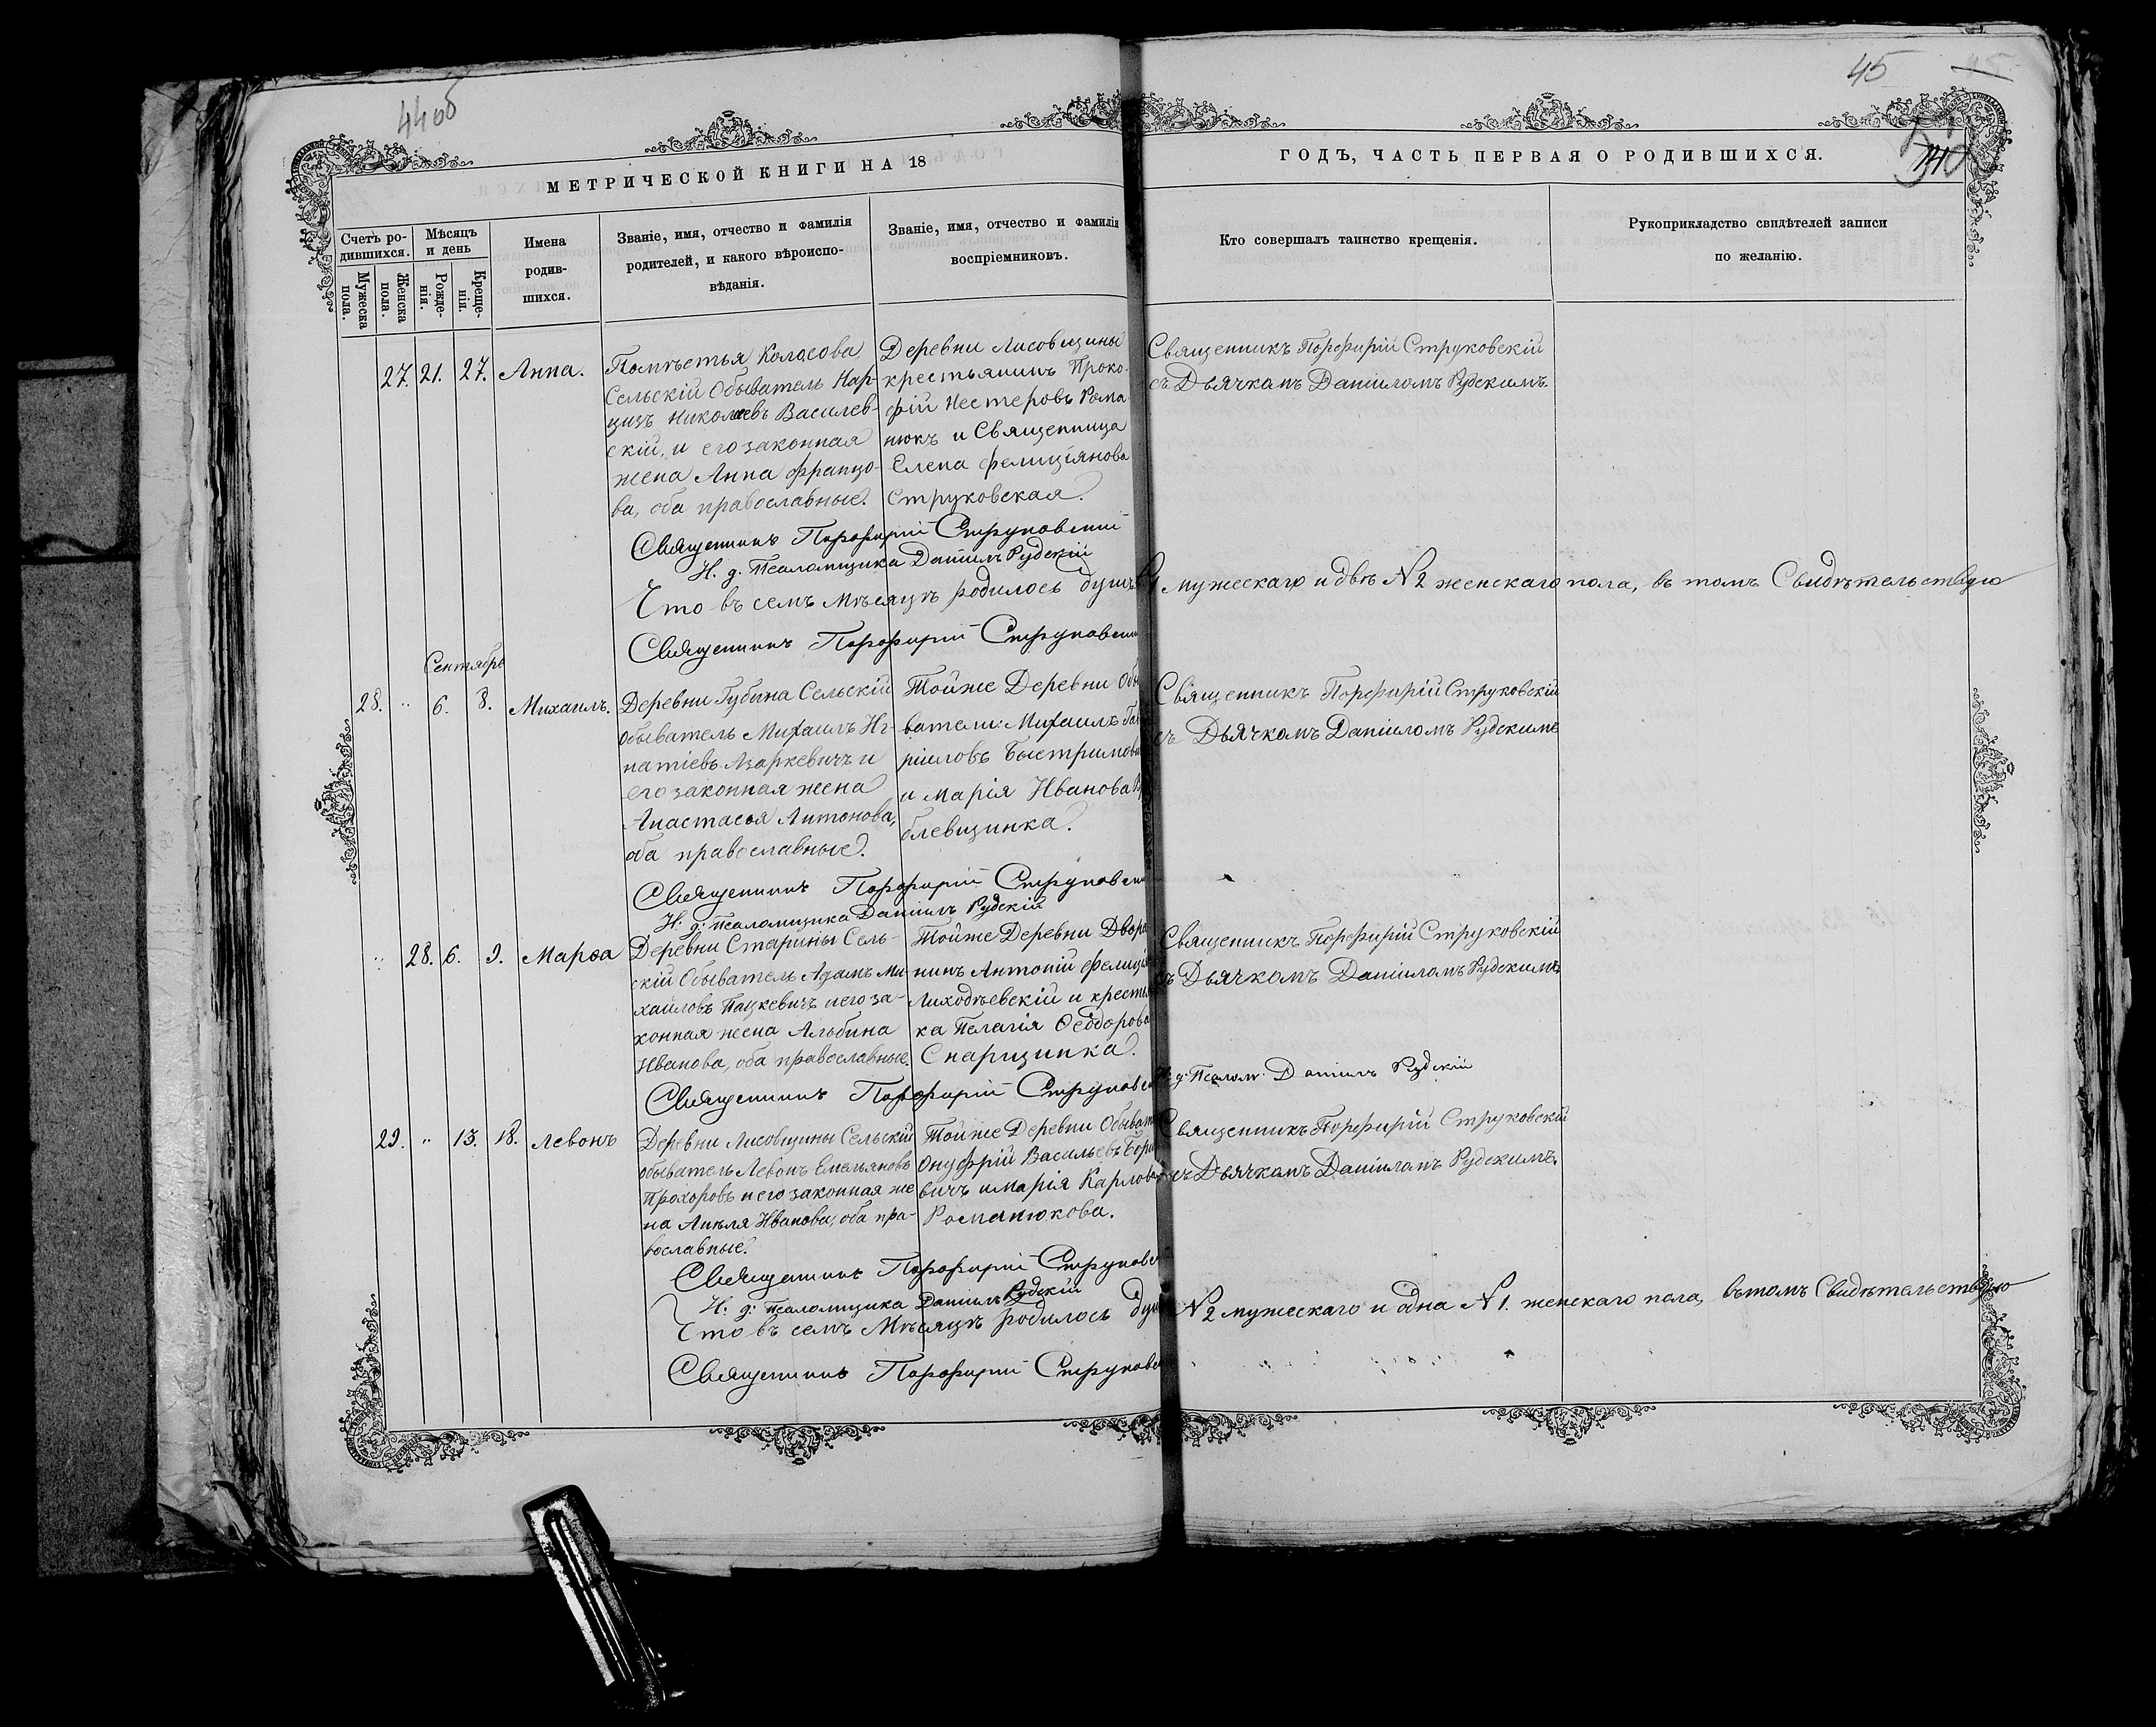 44 об
45
МЕТРИЧЕСКОЙ КНИГИ НА 18
ГОДЪ, ЧАСТЬ ПЕРВАЯ О РОДИВШИХСЯ.
Счетъ ро-
дившихся.
Мужеска
пола.
Женска
пола.
Мѣсяцъ
и день
Рожде-
нія.
Креще-
нія.
Имена
родив-
шихся.
Званіе, имя, отчество и фамилія
родителей, и какого вѣроиспо-
вѣданія.
Званіе, имя, отчество и фамилія
воспріемниковъ.
Кто совершалъ таинство крещенія.
Рукоприкладство свидѣтелей записи
по желанію.
27. 21. 27. Анна.
Помѣстья Колосова
Сельскій Обыватель Нар-
цизъ Николаевъ Василев-
скій, и его законная
жена Анна Францо-
ва, оба православные.
Деревни Лисовщины
крестьянинъ Проко-
фій Нестеровъ Рома
нюкъ и Священница
Елена Фелиціянова
Струковская.
Священникъ Порфирій Струковскій
съ Дьячкомъ Даніиломъ Рудскимъ.
Священникъ Порфирій Струковскій
И. д. Псаломщика Даніилъ Рудскій
Что въ семъ мѣсяцѣ родилось душъ 1 мужескаго и двѣ №2 женскаго пола, въ томъ Свидѣтельствую
Священникъ Порфирій Струковскій
Сентябрь
28. " 6. 8. Михаилъ.
Деревни Губина Сельскій
обыватель Михаилъ Иг-
натіевъ Азаркевичъ и
его законная жена
Анастасья Антонова,
оба православные.
Тойже Деревни Обы
ватели: Михаилъ Гав
ріиловъ Быстримови
и Марія Иванова В
блевщинка.
Священникъ Порфирій Струковскій
съ Дьячкомъ Даніиломъ Рудскимъ
Священникъ Порфирій Струковск
И. д. псаломщика Даніилъ Рудскій
" 28. 6. 9. Марѳа
Деревни Старины Сель-
скій Обыватель Адамъ Ми-
хаиловъ Пацкевичъ и его за-
конная жена Альбина
Иванова, оба православные.
Тойже Деревни Дворя
нинъ Антоній Фелиція
Лиходѣевскій и крестья
ка Пелагія Ѳеодорова
Снарщинка.
Священникъ Порфирій Струковскій
съ Дьячкомъ Даніиломъ Рудскимъ
Священникъ Порфирій Струковск И. д. Псалом. Даніилъ Рудскій
29. " 13. 18. Левонъ
Деревни Лисовщины Сельскій
обыватель Левонъ Емельяновъ
Прохоровъ и его законная же
на Анѣля Иванова, оба пра-
вославные.
Тойже Деревни Обыват
Онуфрій Васильевъ Бори
вичъ и Марія Карлова
Романюкова.
Священникъ Порфирій Струковскій
съ Дьячкомъ Даніиломъ Рудскимъ.
Священникъ Порфирій Струковс
И. д. псаломщика Даніилъ Рудскій
Что въ семъ Мѣсяцѣ родилось душ №2 мужескаго и одна №1. женскаго пола, въ томъ Свидѣтельствую
Священникъ Порфирій Струковс